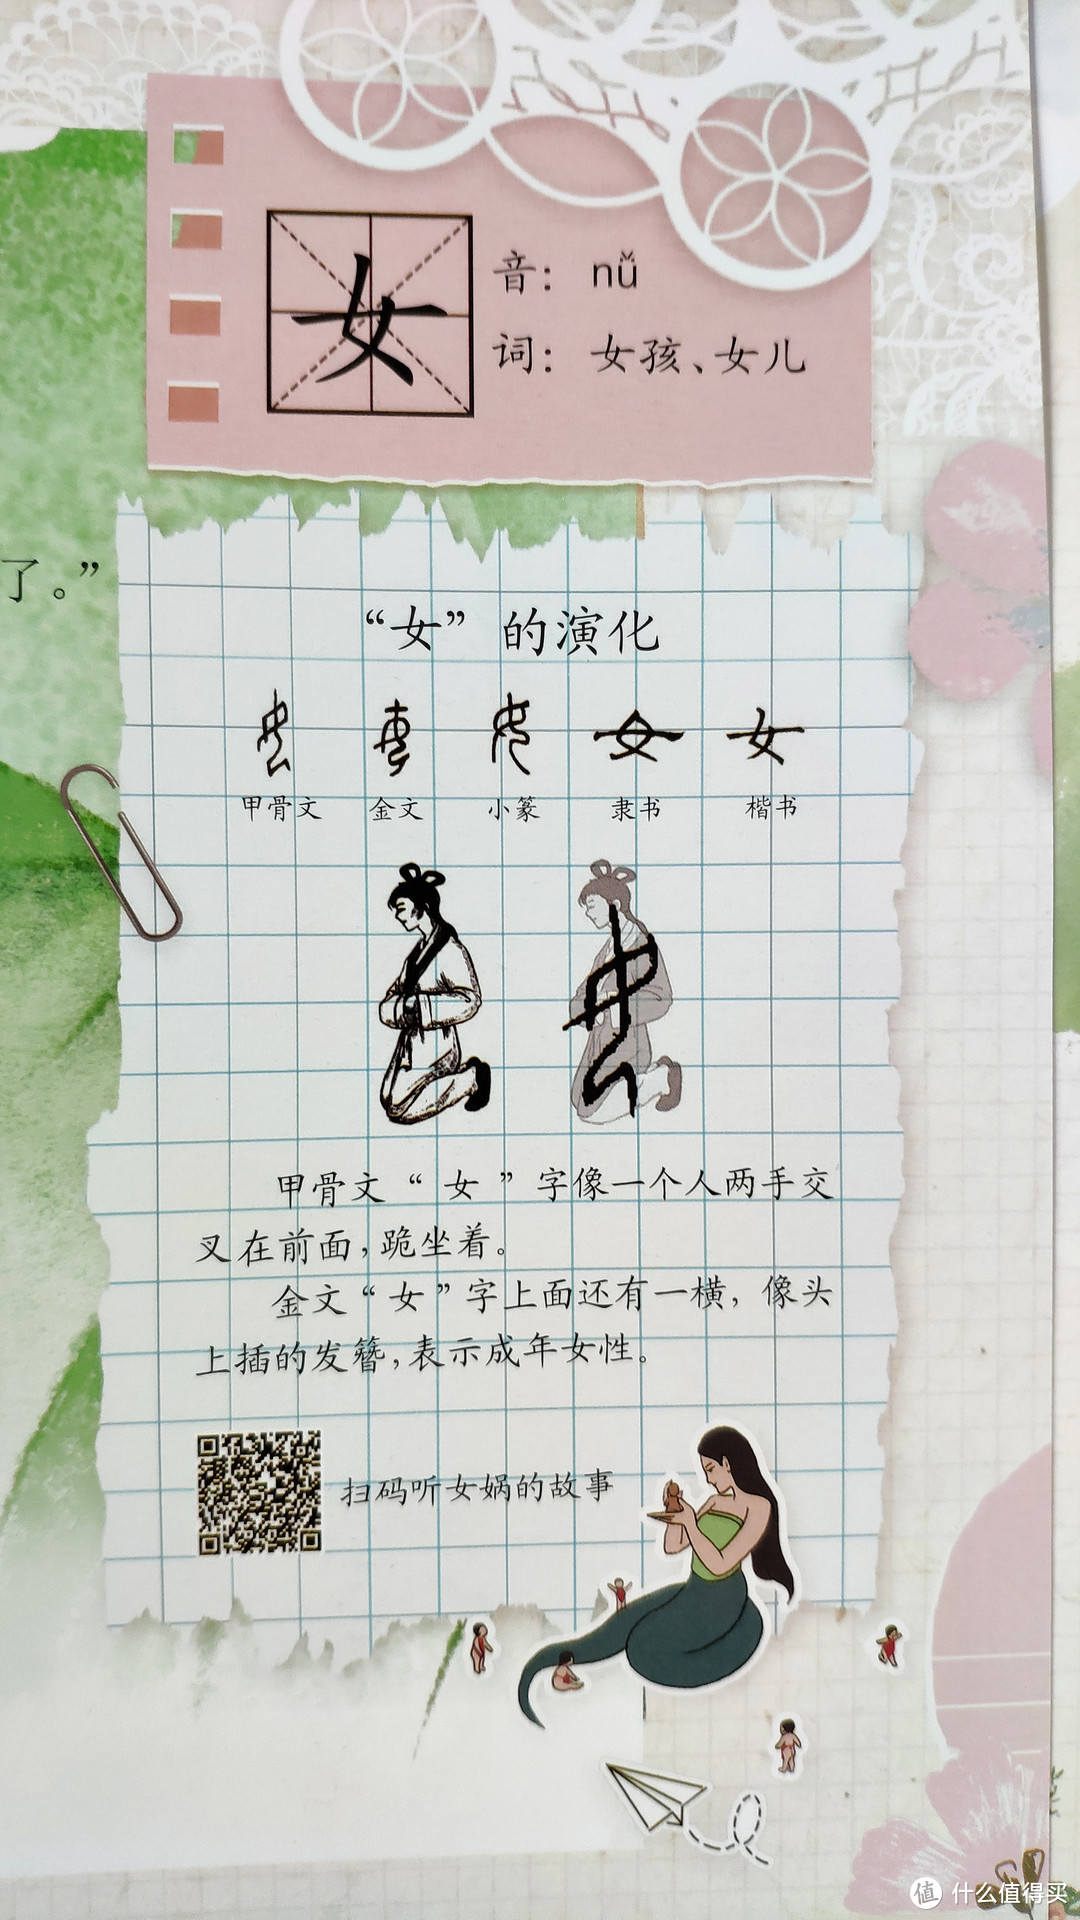 女
音： nǚ
词： 女孩、女儿
了。”
“女” 的演化
甲骨文 金文 小篆 隶书 楷书
甲骨文“女”字像一个人两手交
叉在前面，跪坐着。
金文“女”字上面还有一横，像头
上插的发簪，表示成年女性。
扫码听女娲的故事
值 什么值得买